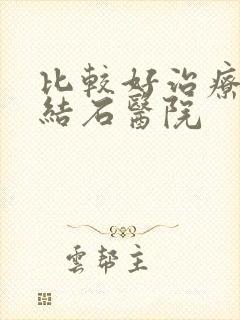 比較好治療
結石醫院
雲帮主